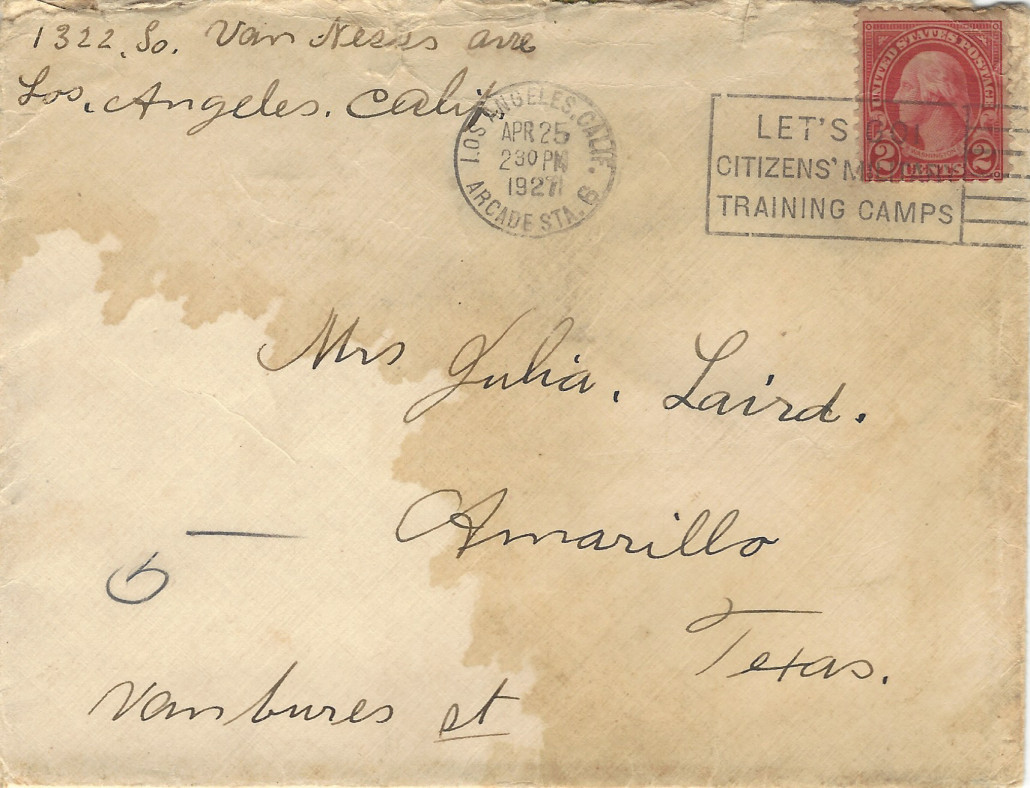 1322. So. Van Nesss ave
Los. Angeles. Calif.
LOS ANGELES. CALIF.
APR 25
230 PM
1927
ARCADE STA. 6
LET'S GO!
CITIZENS' MILITARY
TRAINING CAMPS
UNITED STATES POSTAGE
2 CENTS 2
Mrs Julia. Laird.
Amarillo
Texas.
Vanbures st